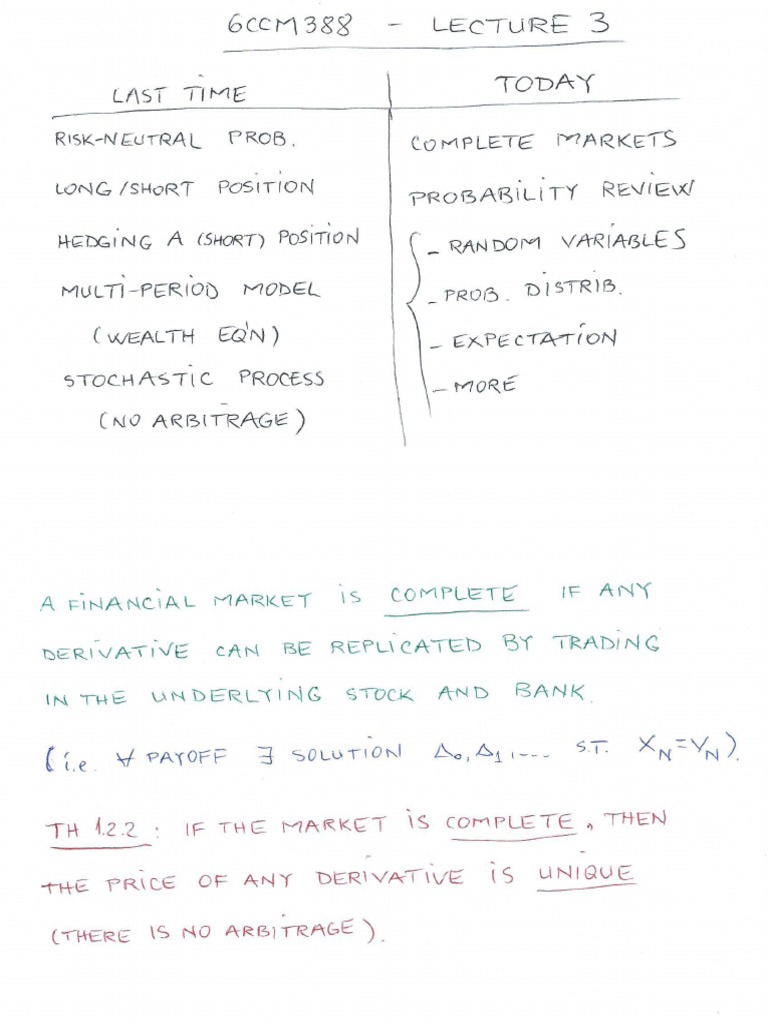 6CCM388 - LECTURE 3
LAST TIME
TODAY
RISK-NEUTRAL PROB.
LONG/SHORT POSITION
HEDGING A (SHORT) POSITION
MULTI-PERIOD MODEL
(WEALTH EQ'N)
STOCHASTIC PROCESS
(NO ARBITRAGE)
COMPLETE MARKETS
PROBABILITY REVIEW
- RANDOM VARIABLES
- PROB. DISTRIB.
- EXPECTATION
- MORE
A FINANCIAL MARKET IS COMPLETE IF ANY
DERIVATIVE CAN BE REPLICATED BY TRADING
IN THE UNDERLYING STOCK AND BANK.
(i.e. ∀ PAYOFF ∃ SOLUTION Δ₀, Δ₁, .... S.T. X_N = V_N).
TH 1.2.2 : IF THE MARKET IS COMPLETE, THEN
THE PRICE OF ANY DERIVATIVE IS UNIQUE
(THERE IS NO ARBITRAGE).